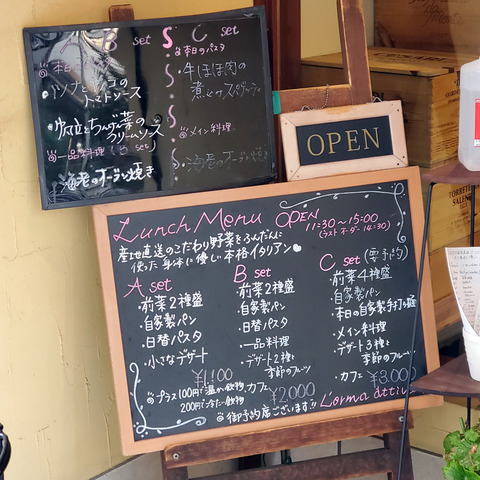 B set
本日
ツナとキノコの
トマトソース
帆立とちんげん菜の
クリームソース
一品料理 (B set)
海老のオーブン焼き
C set
本日のパスタ
・牛ほほ肉の
煮込みスパゲッティ
メイン料理
・海老のオーブン焼き
OPEN
Lunch Menu OPEN
11:30～15:00
(ラストオーダー 14:30)
産地直送のこだわり野菜をふんだんに
使った身体に優しい本格イタリアン
A set
・前菜2種盛
・自家製パン
・日替パスタ
・小さなデザート
¥1,100
プラス100円で温かい飲物
200円で冷たい飲物
B set
・前菜2種盛
・自家製パン
・日替パスタ
・一品料理
・デザート2種と
季節のフルーツ
・カフェ
¥2,000
C set (要予約)
・前菜4種盛
・自家製パン
・本日の自家製手打ち麺
・メイン料理
・デザート3種と
季節のフルーツ
・カフェ
¥3,000
御予約席ございます!!
L'orma